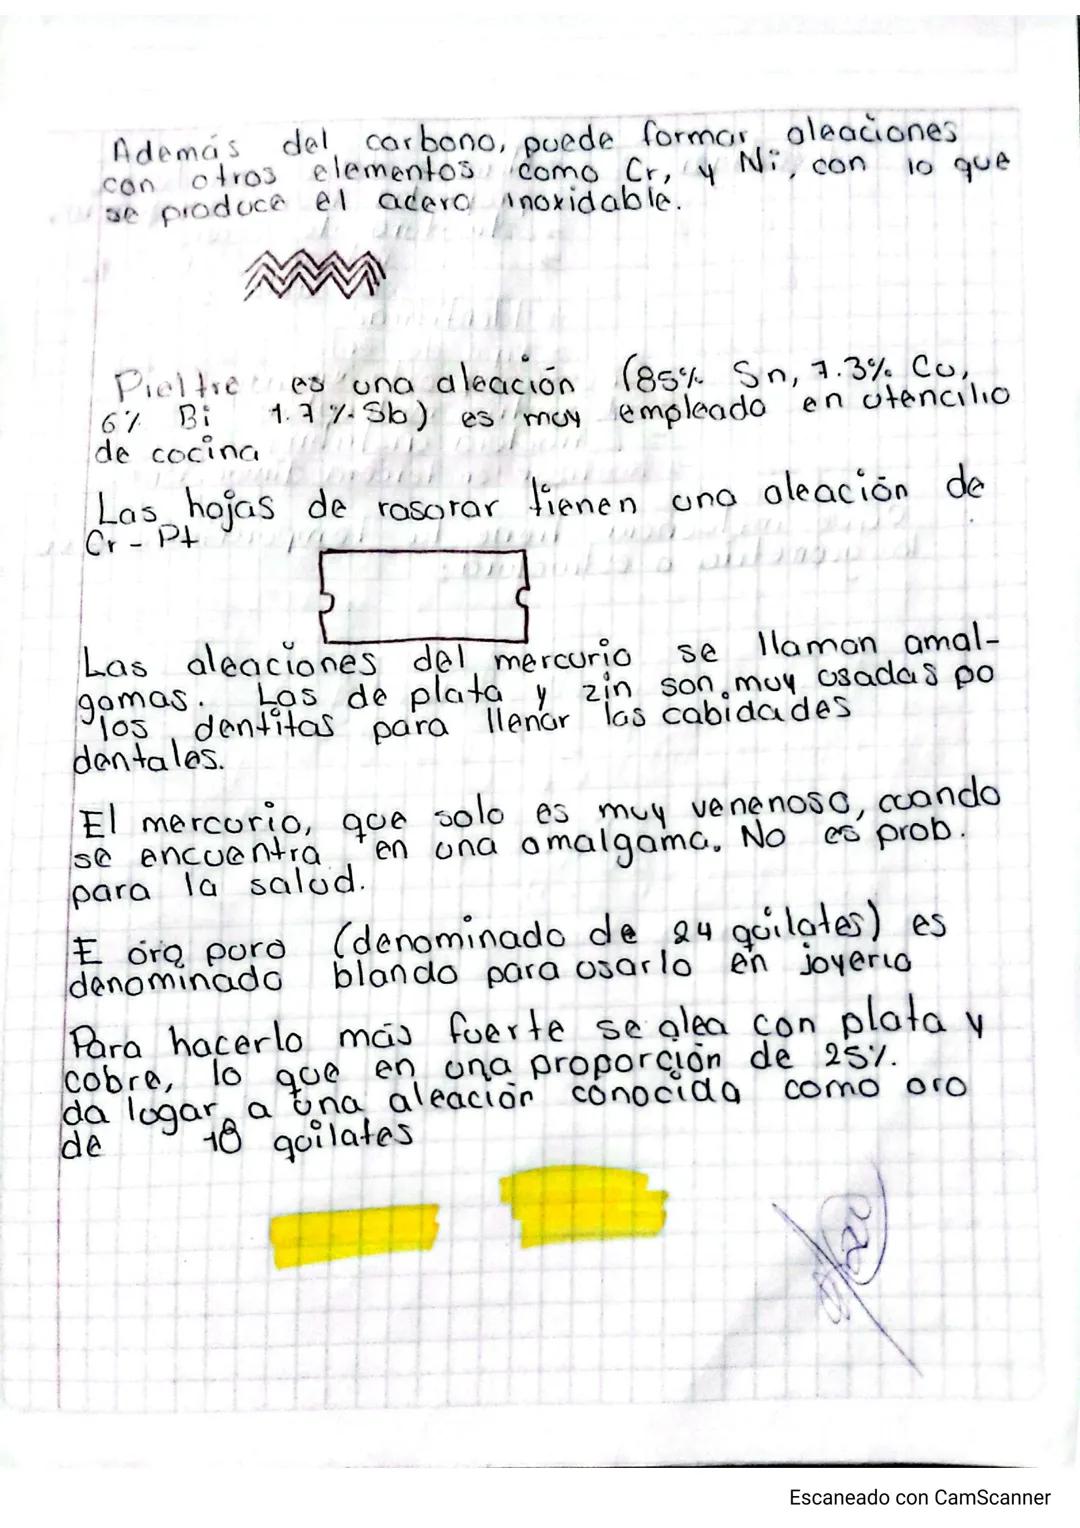 Además del carbono, puede formar aleaciones
con otros elementos como Cr, y Ni, con lo que
se produce el acero inoxidable.
Pieltre es una aleación (85% Sn, 7.3% Cu,
6% Bi 1.7% Sb) es muy empleado en utencilio
de cocina
Las hojas de rasorar tienen una aleación de
Cr - Pt
Las aleaciones del mercurio se llaman amal-
gamas. Las de plata y zin son muy usadas po
los dentitas para llenar las cabidades
dentales.
El mercurio, que solo es muy venenoso, cuando
se encuentra en una amalgama. No es prob.
para la salud.
E oro puro (denominado de 24 quilates) es
denominado blando para usarlo en joyeria
Para hacerlo más fuerte se alea con plata y
cobre, lo que en una proporción de 25%.
da lugar a una aleación conocida como oro
de 18 quilates
Escaneado con CamScanner